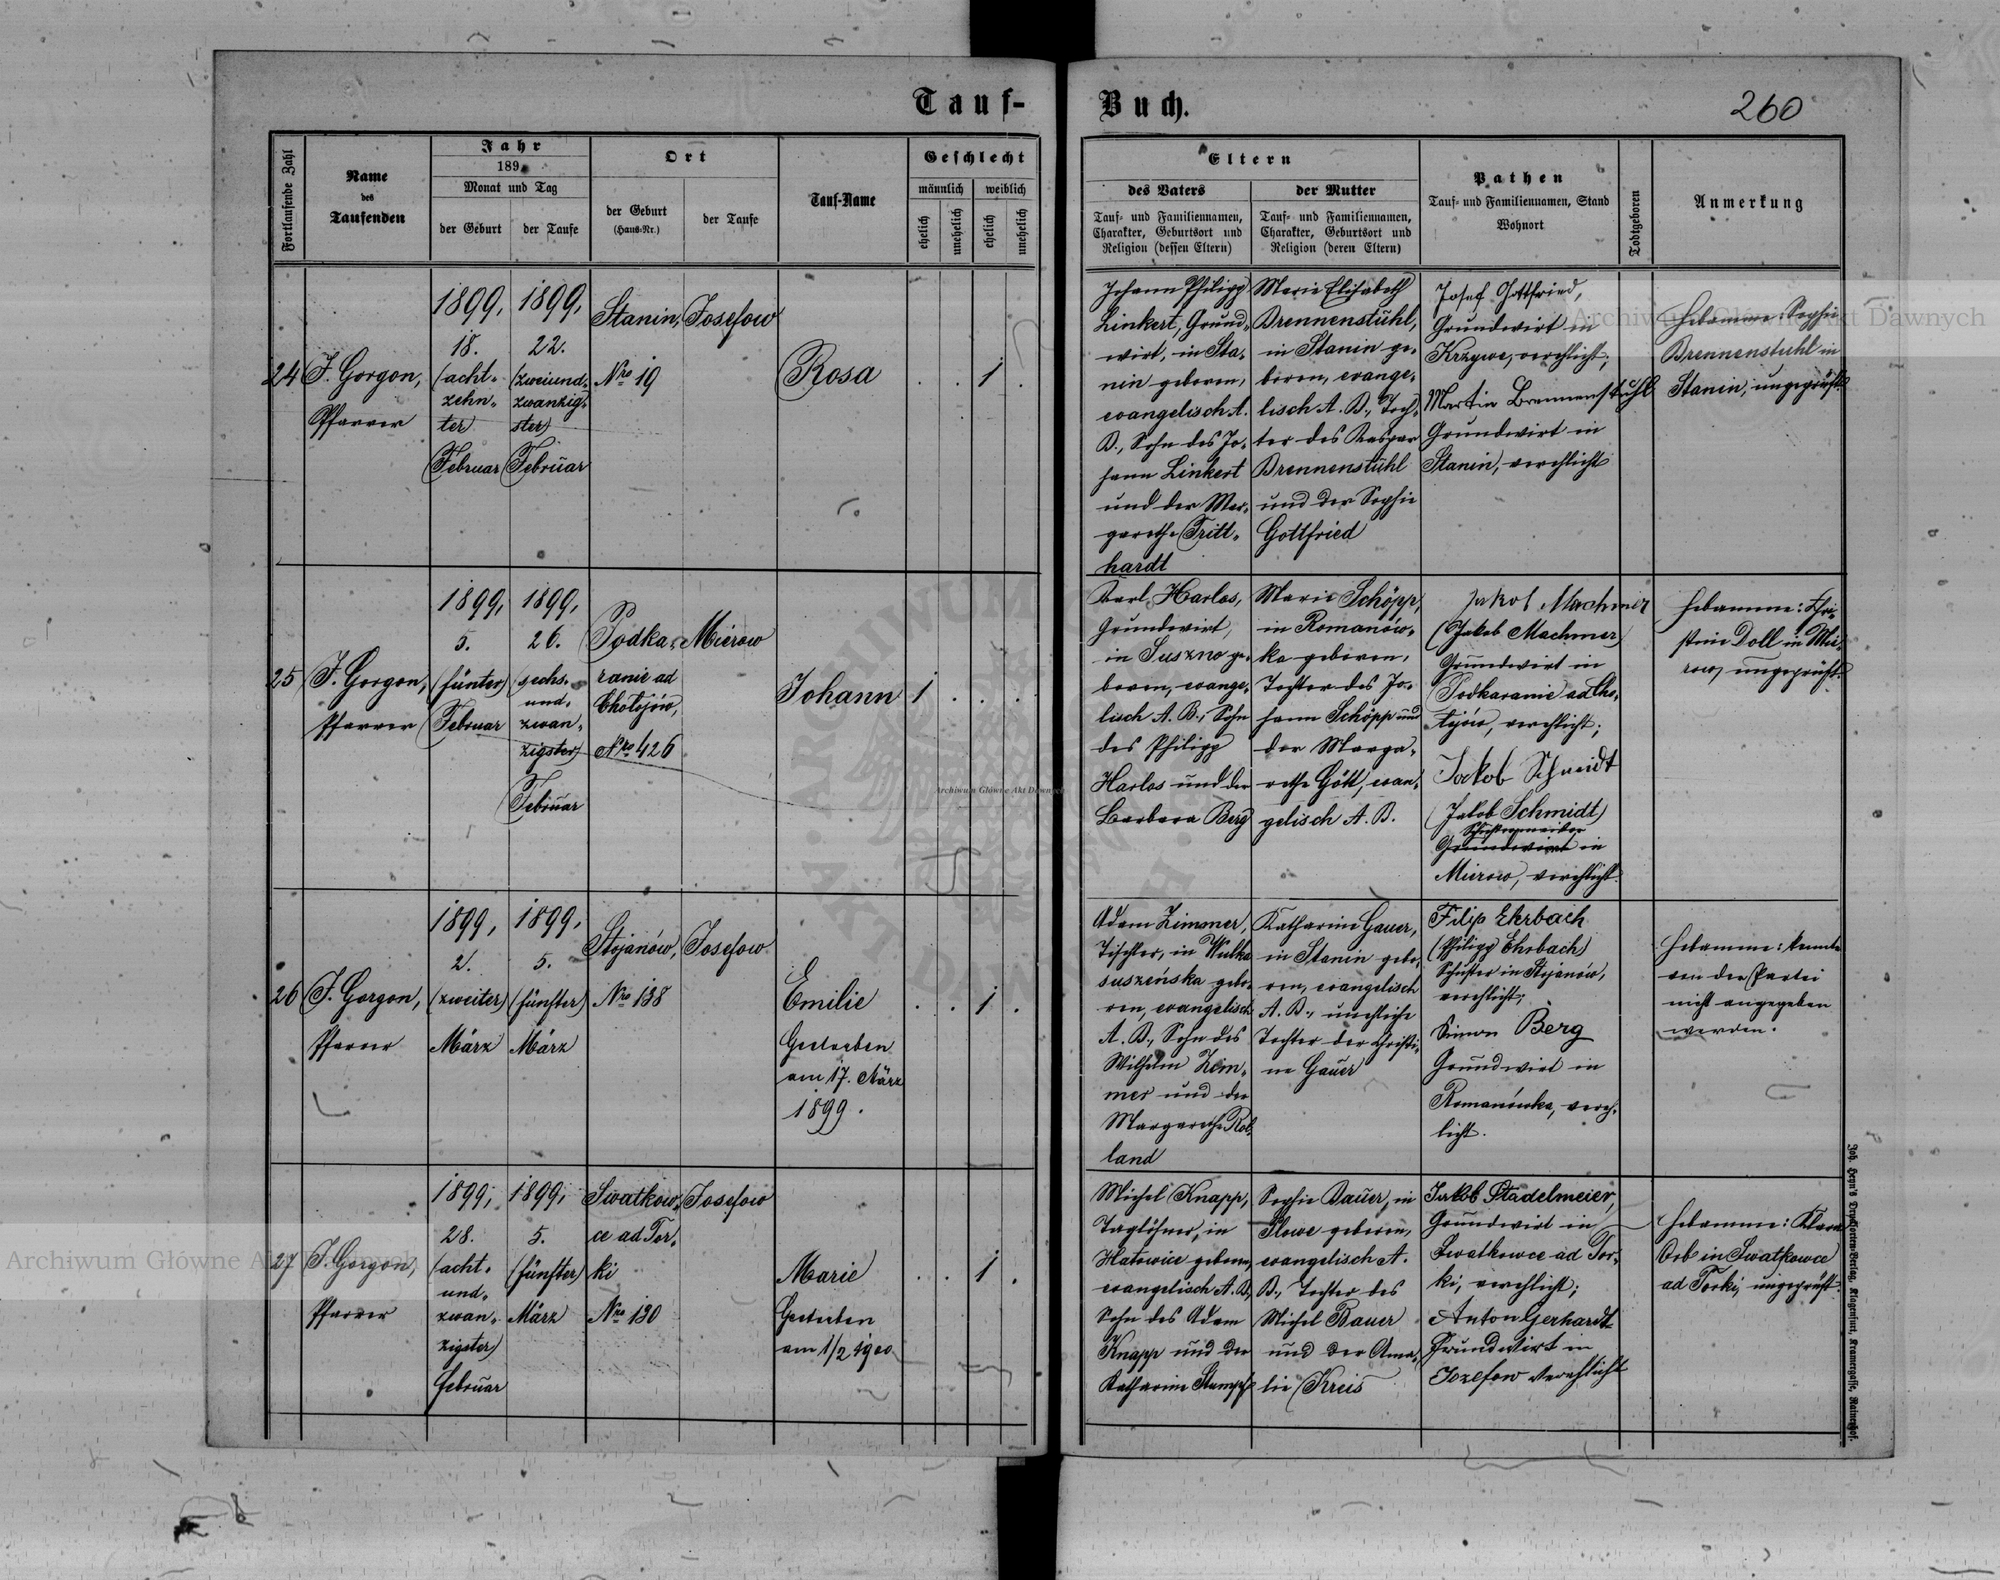 Tauf-
Buch.
260
Fortlaufende Zahl
Name
des
Taufenden
Jahr
189
Monat und Tag
der Geburt
der Taufe
Ort
der Geburt
(Haus-Nr.)
der Taufe
Tauf-Name
Geschlecht
männlich
weiblich
ehelich
unehelich
ehelich
unehelich
Eltern
des Vaters
Tauf- und Familiennamen,
Charakter, Geburtsort und
Religion (dessen Eltern)
der Mutter
Tauf- und Familiennamen,
Charakter, Geburtsort und
Religion (deren Eltern)
Pathen
Tauf- und Familiennamen, Stand
Wohnort
Todtgeboren
Anmerkung
24
J. Gorgon,
Pfarrer
1899,
18.
(acht-
zehn-
ter)
Februar
1899,
22.
(zweiund-
zwanzig-
ster)
Februar
Stanin,
Nro 19
Josefow
Rosa
1
Johann Philipp
Linkert, Grund-
wirt, in Sta-
nin geboren,
evangelisch A.
B., Sohn des Jo-
hann Linkert
und der Mar-
garethe Tritt-
hardt
Marie Elisabeth
Brennenstuhl,
in Stanin ge-
boren, evange-
lisch A. B., Toch-
ter des Kaspar
Brennenstuhl
und der Sophie
Gottfried
Josef Gottfried,
Grundwirt in
Krzywe, verehlicht;
Martin Brennenstuhl
Grundwirt in
Stanin, verehlicht
Hebamme: Sophie
Brennenstuhl in
Stanin, ungeprüft.
25
J. Gorgon,
Pfarrer
1899,
5.
(fünter)
Februar
1899,
26.
(sechs-
und-
zwan-
zigster)
Februar
Podka-
ranie ad
Chołojów,
Nro 426
Mierow
Johann
1
Karl Harlos,
Grundwirt,
in Suszno ge-
boren, evange-
lisch A. B., Sohn
des Philipp
Harlos und der
Barbara Berg
Marie Schöpp,
in Romanów-
ka geboren,
Tochter des Jo-
hann Schöpp und
der Marga-
rethe Gött, evan-
gelisch A. B.
Jakob Machmer
(Jakob Machmer)
Grundwirt in
Podkaranie ad Cho-
łojów, verehlicht;
Jakob Schmidt
(Jakob Schmidt)
Grundwirt in
Mierow, verehlicht.
Hebamme: Kri-
stine Doll in Mie-
row, ungeprüft.
26
J. Gorgon,
Pfarrer
1899,
2.
(zweiter)
März
1899,
5.
(fünfter)
März
Stojanów,
Nro 138
Josefow
Emilie
Gestorben
am 17. März
1899.
1
Adam Zimmer,
Tischler, in Wulka
suszeńska gebo-
ren, evangelisch
A. B., Sohn des
Wilhelm Zim-
mer und der
Margarethe Rol-
land
Katharine Gauer,
in Stanin gebo-
ren, evangelisch
A. B., uneheliche
Tochter der Christi-
ne Gauer
Filip Ehrbach
(Philipp Ehrbach)
Schuster in Stojanów,
verehlicht;
Simon Berg
Grundwirt in
Romanówka, vereh-
licht.
Hebamme: konnte
von der Partei
nicht angegeben
werden.
27
J. Gorgon,
Pfarrer
1899,
28.
(acht-
und-
zwan-
zigster)
Februar
1899,
5.
(fünfter)
März
Swatkow-
ce ad Tor-
ki
Nro 130
Josefow
Marie
Gestorben
am 1/2 1900
1
Michel Knapp,
Taglöhner, in
Hatowice geboren,
evangelisch A. B.,
Sohn des Adam
Knapp und der
Katharine Stumpf
Sophie Bauer, in
Plowe geboren,
evangelisch A.
B., Tochter des
Michel Bauer
und der Ama-
lie Kreis
Jakob Stadelmeier,
Grundwirt in
Swatkowce ad Tor-
ki, verehlicht;
Anton Gerhardt
Grundwirt in
Jozefow verehlicht
Hebamme: Klara
Orb in Swatkowce
ad Torki, ungeprüft.
Joh. Heyn's Drucksorten-Verlag, Klagenfurt, Kramergasse, Rainerhof.
Archiwum Główne Akt Dawnych
Archiwum Główne Akt Dawnych
Archiwum Główne Akt Dawnych